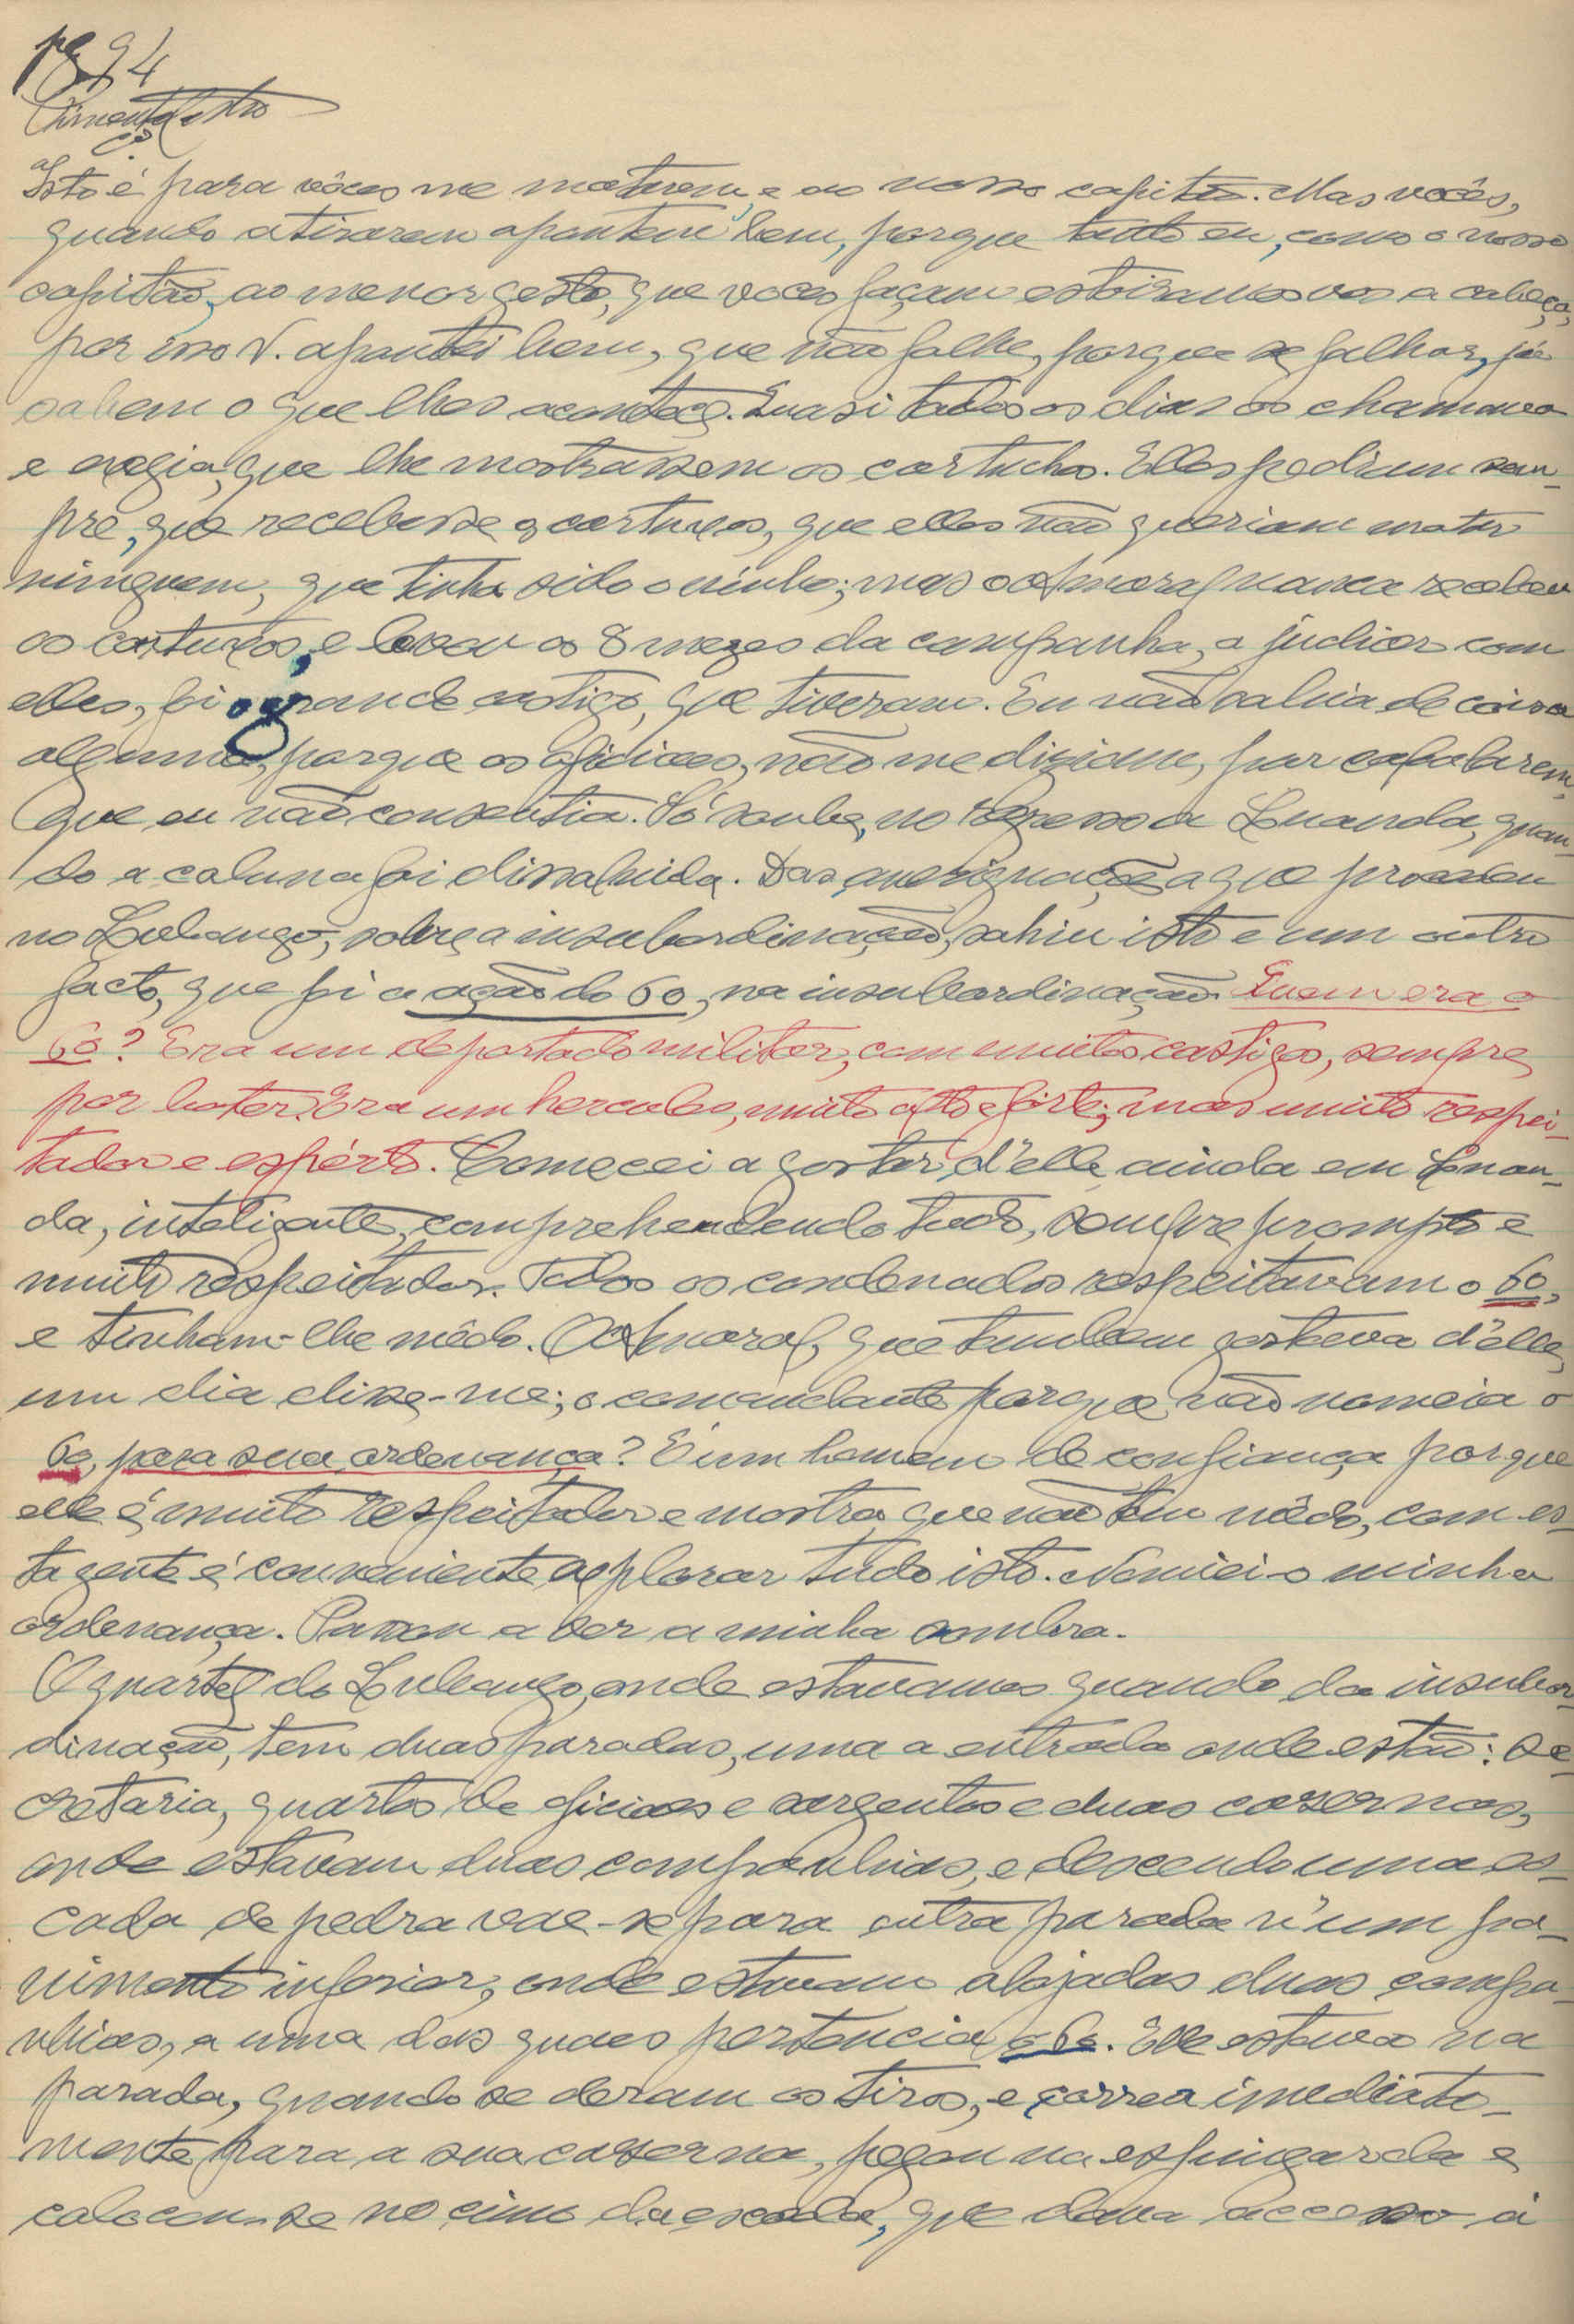 pg 94
Isto é para vocês me matarem, e ao nosso capitão. Mas vocês,
quando atirarem apontem bem, porque tanto eu, como o nosso
capitão, ao menor gesto, que vocês façam estoiramos vos a cabeça,
por isso V. apontei bem, que não falhe, porque se falhar, já
sabem o que lhes acontece. Quasi todos os dias os chamava
e exegia, que lhe mostrassem os cartuchos. Elles pediam sem-
pre, que recebesse os cartuxos, que elles não queriam matar
ninguem, que tinha sido o vinho; mas o Amaral nunca recebeu
os cartuxos, e levou os 8 mezes da campanha, a judiar com
elles, foi o grande castigo, que tiveram. Eu não sabia de coisa
alguma, porque os oficiaes, não me diziam, por calcularem,
que eu não consentia. Só soube, no regresso a Luanda, quan-
do a coluna foi dissolvida. Das averiguações a que procedeu
no Lubango, sobre a insubordinação, sahiu isto e um outro
facto, que foi a ação do 60, na insubordinação. Quem era o
60? Era um deportado militar, com muitos castigos, sempre
por bater. Era um hercules, muito alto e forte; mas muito respei-
tador e espérto. Comecei a gostar d'elle ainda em Luan-
da, inteligente, comprehendendo tudo, sempre prompto e
muito respeitador. Todos os condenados respeitavam o 60,
e tinham-lhe mêdo. O Amaral, que tambem gostava d'elle,
um dia disse-me; o comandante porque não nomeia o
60, para sua ordenança? É um homem de confiança porque
elle é muito respeitador e mostra que não tem mêdo, com es-
ta gente é conveniente explorar tudo isto. Nomiei-o minha
ordenança. Passou a ser a minha sombra.
O quartel do Lubango, onde estavamos quando da insubor-
dinação, tem duas paradas, uma a entrada onde estão: Se-
cretaria, quartos de oficiaes e sargentos e duas casernas,
onde estavam duas companhias, e descendo uma es-
cada de pedra vae-se para outra parada n'um pa-
vimento inferior, onde estavam alojadas duas compa-
nhias, a uma das quaes pertencia o 60. Elle estava na
parada, quando se deram os tiros, e correu imediata-
mente para a sua caserna, pegou na espingarda e
colocou-se no cimo da escada, que dava accesso á